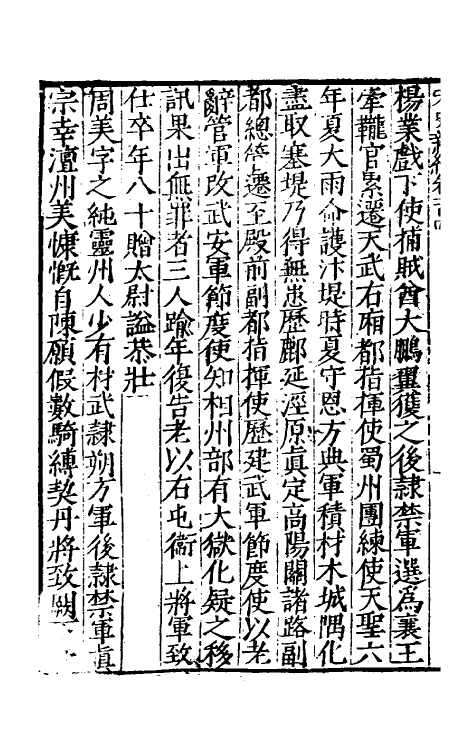 楊業戲下使捕賊酋大鵬翼獲之後隸禁軍選爲襄王
牽鞚官累遷天武右廂都指揮使蜀州團練使天聖六
年夏大雨命護汴堤時夏守恩方典軍積材木城隅化
盡取塞堤乃得無患歷鄜延涇原眞定高陽關諸路副
都總管遷至殿前副都指揮使歷建武軍節度使以老
辭管軍改武安軍節度使知相州部有大獄化疑之移
訊果出無罪者三人踰年復告老以右屯衞上將軍致
仕卒年八十贈太尉謚恭壯
周美字之純靈州人少有材武隸朔方軍後隸禁軍眞
宗幸澶州美慷慨自陳願假數騎縛契丹將致闕